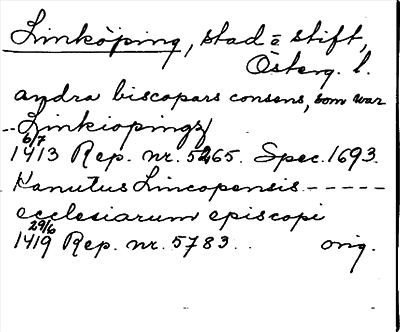 Linköping, stad o stift,
Österg. l.
andra biscopars consens, som war
Linkiopings
6/7
1413 Rep. nr. 5265. Spec. 1693.
Kanutus Lincopensis - - - - -
ecclesiarum episcopi
29/6
1419 Rep. nr. 5783. orig.